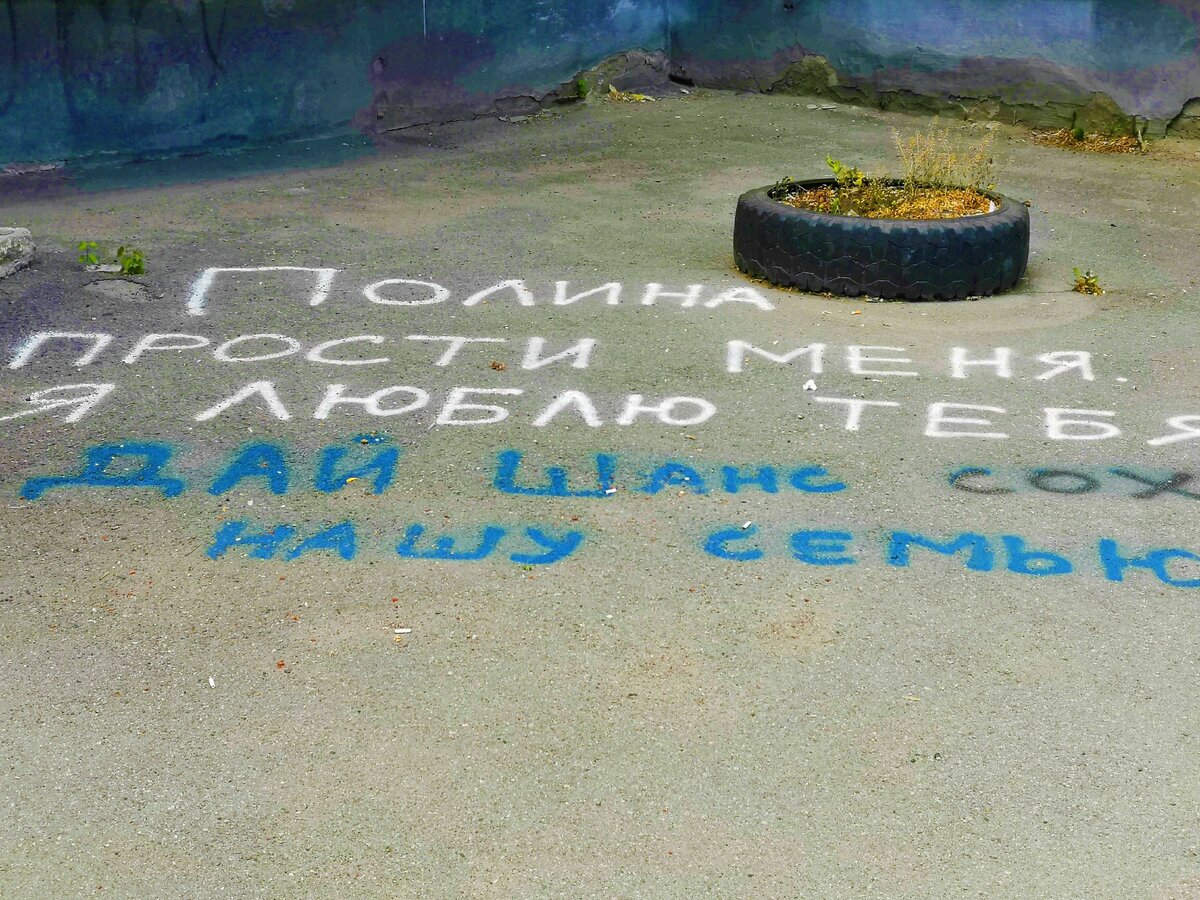 Полина
ПРОСТИ МЕНЯ.
Я ЛЮБЛЮ ТЕБЯ
ДАЙ ШАНС СОХ
НАШУ СЕМЬЮ